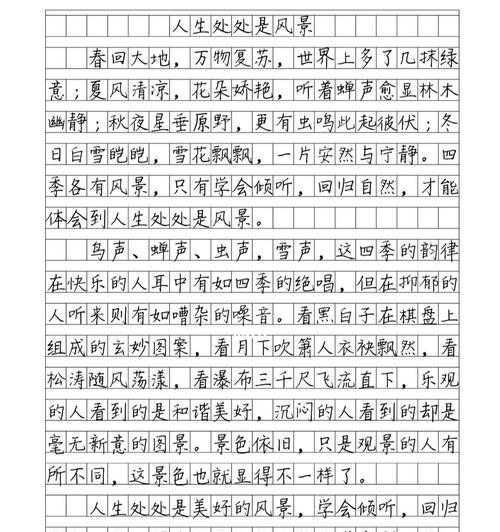 人生处处是风景
春回大地，万物复苏，世界上多了几抹绿
意；夏风清凉，花朵娇艳，听着蝉声愈显林木
幽静；秋夜星垂原野，更有虫鸣此起彼伏；冬
日白雪皑皑，雪花飘飘，一片安然与宁静。四
季各有风景，只有学会倾听，回归自然，才能
体会到人生处处是风景。
鸟声、蝉声、虫声，雪声，这四季的韵律
在快乐的人耳中有如四季的绝唱，但在抑郁的
人听来则有如嘈杂的噪音。看黑白子在棋盘上
组成的玄妙图案，看月下吹箫人衣袂飘然，看
松涛随风荡漾，看瀑布三千尺飞流直下，乐观
的人看到的是和谐美好，沉闷的人看到的却是
毫无新意的图景。景色依旧，只是观景的人有
所不同，这景色也就显得不一样了。
人生处处是美好的风景，学会倾听，回归